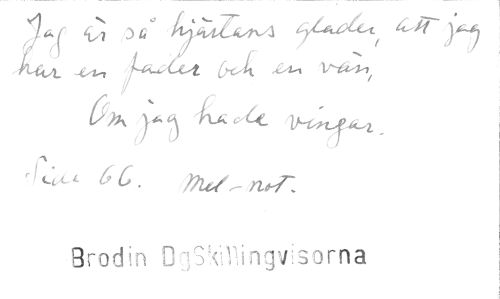 Jag är så hjärtans glader, att jag
har en fader och en vän,
Om jag hade vingar.
Sida 66. Mel-not.
Brodin DgSkillingvisorna